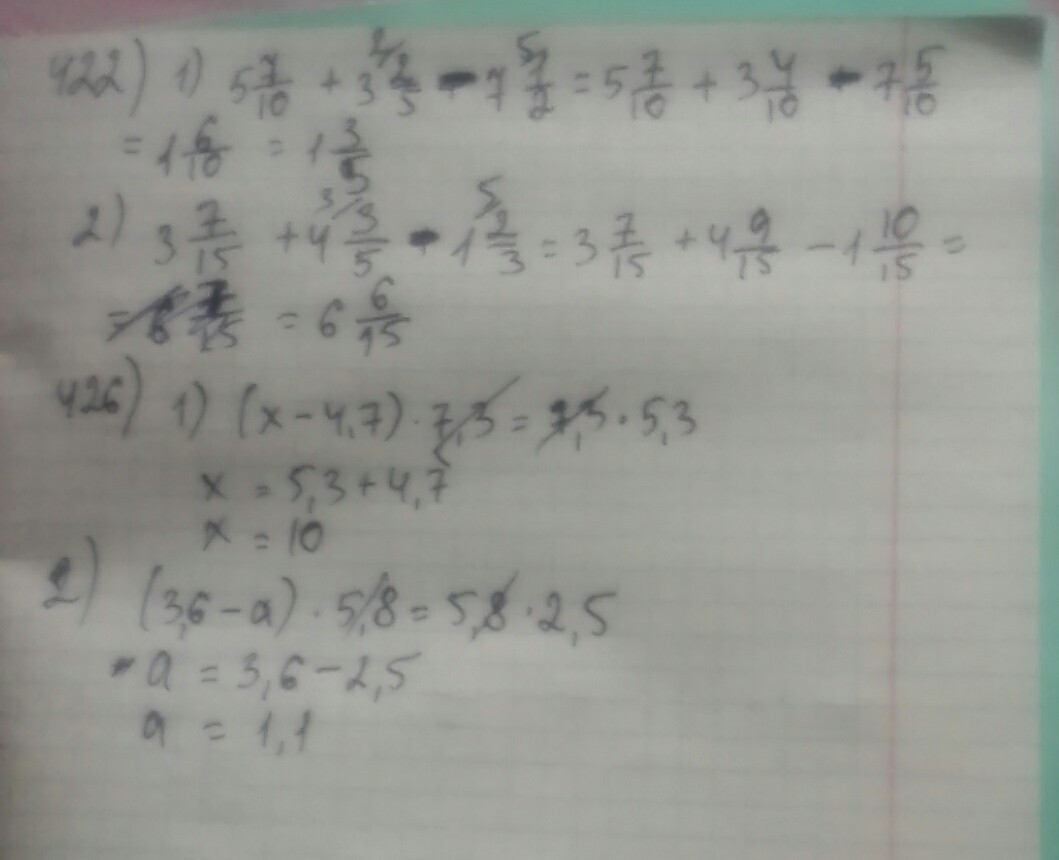 422) 1) 5 7/10 + 3 2/5 - 7 1/2 = 5 7/10 + 3 4/10 - 7 5/10
= 1 6/10 = 1 3/5
2) 3 7/15 + 4 3/5 - 1 2/3 = 3 7/15 + 4 9/15 - 1 10/15 =
= 6 6/15
426) 1) (x-4,7) · 7,3 = 7,3 · 5,3
x = 5,3+4,7
x = 10
2) (3,6-a) · 5,8 = 5,8 · 2,5
a = 3,6-2,5
a = 1,1